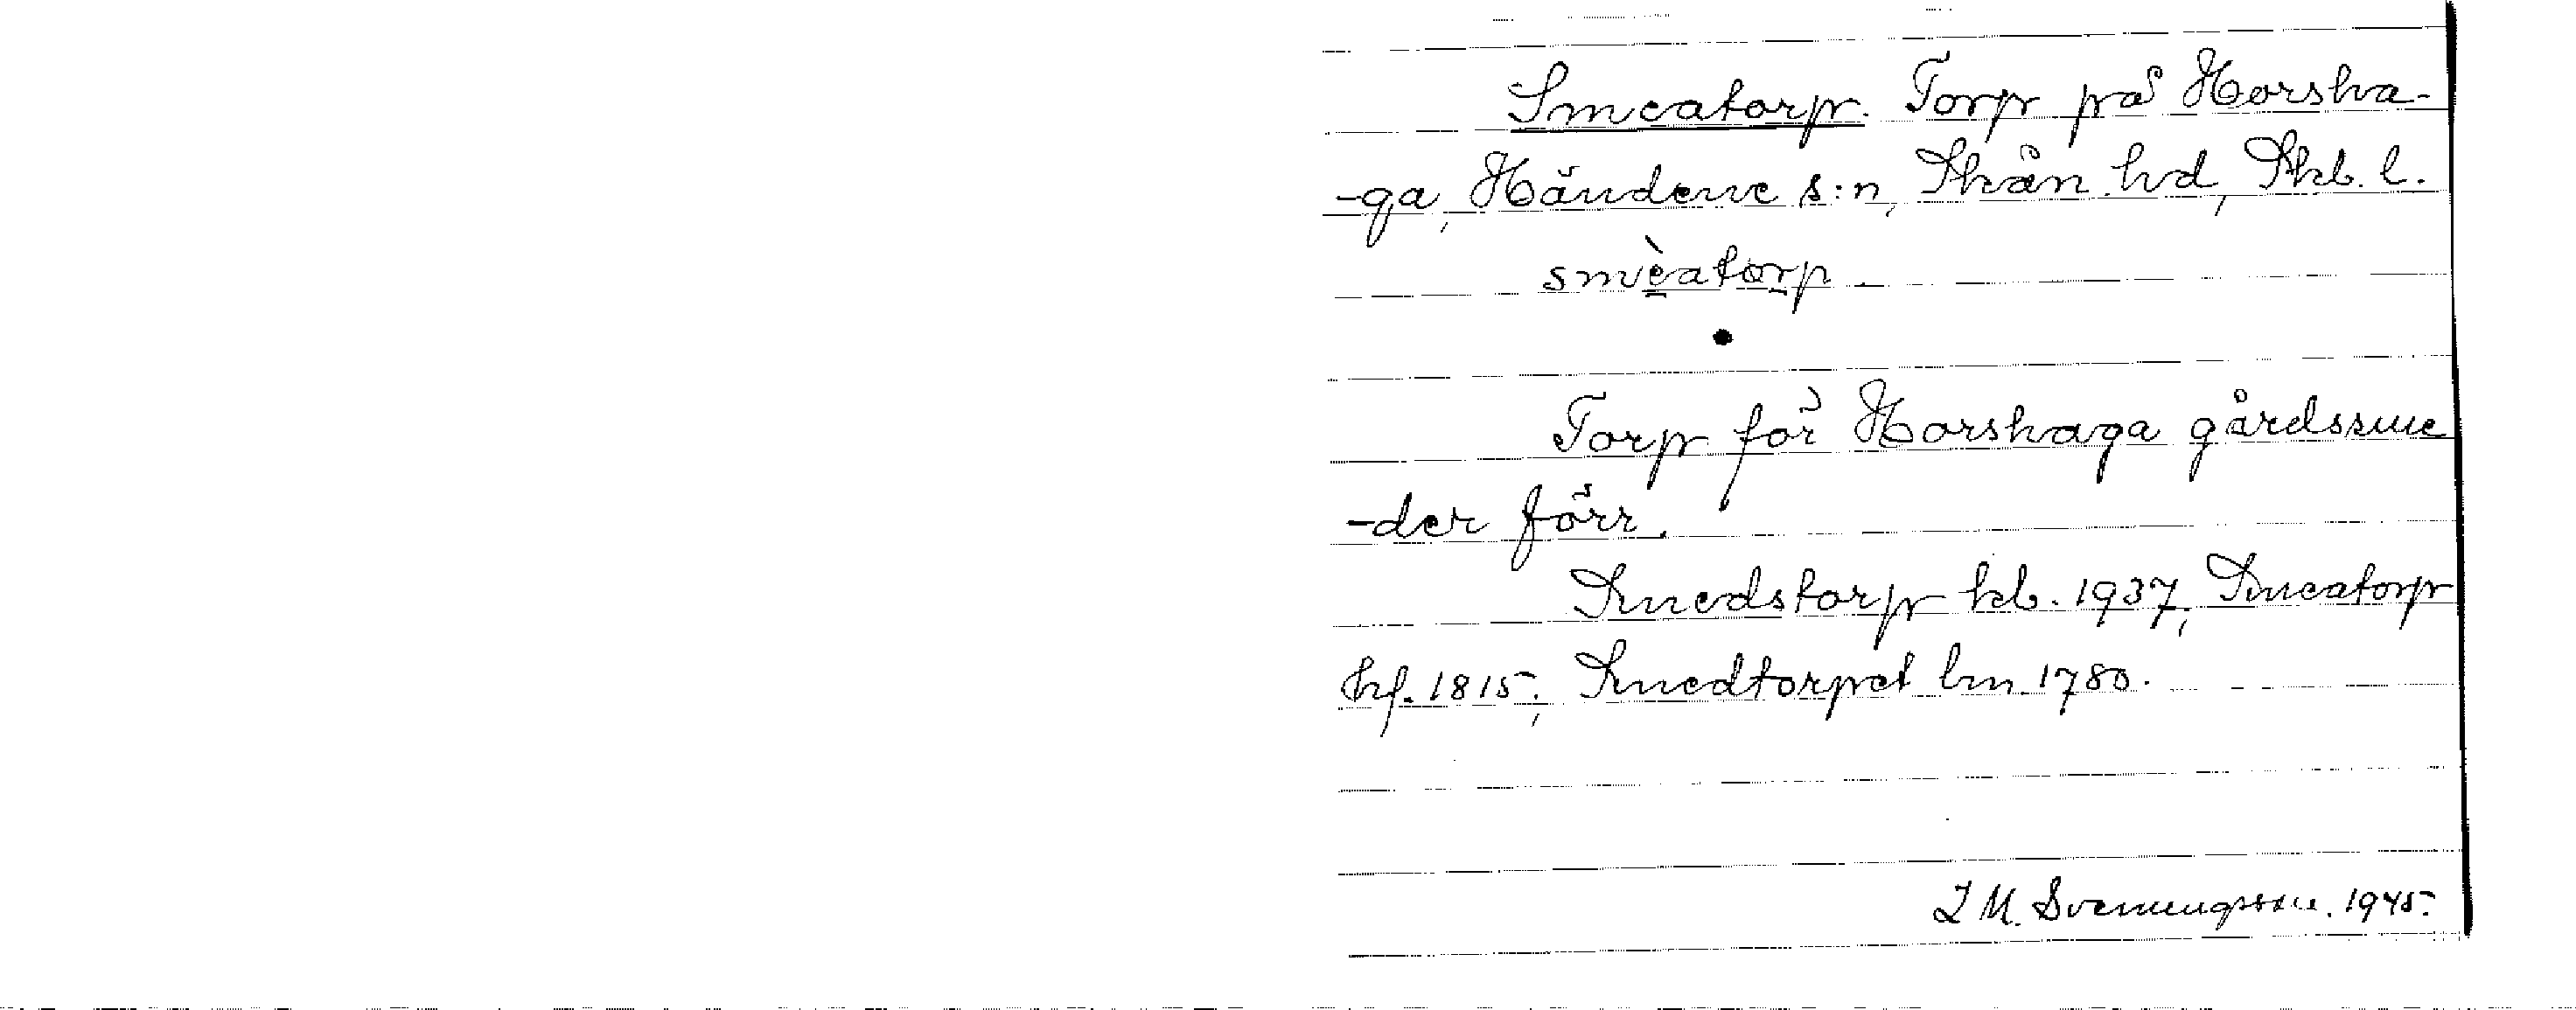 Smeatorp. Torp på Horsha-
-ga, Händene s:n, Skån. hd, Skb. l.
smèatorp
Torp för Horshaga gårdssme
-der förr.
Smedstorp kb. 1937, Smeatorp
hf. 1815; Smedtorpet lm 1780.
I M. Svenungsson. 1945.